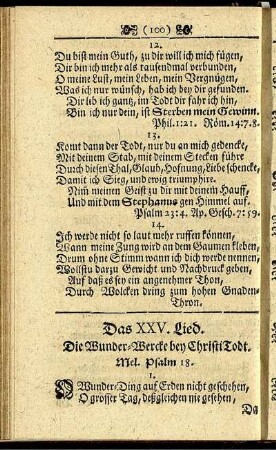 (100)
12.
Du bist mein Guth, zu dir will ich mich fügen,
Dir bin ich mehr als tausendmal verbunden,
O meine Lust, mein Leben, mein Vergnügen,
Was ich nur wünsch, hab ich bey dir gefunden.
Dir leb ich gantz, im Todt dir fahr ich hin,
Bin ich nur dein, ist Sterben mein Gewinn.
Phil. 1:21. Röm. 14:7.8.
13.
Komt dann der Todt, nur du an mich gedencke,
Mit deinem Stab, mit deinem Stecken führe
Durch diesen Thal, Glaub, Hofnung, Liebe schencke,
Damit ich Sieg, und ewig triumphire.
Nim̃ meinen Geist zu dir mit deinem Hauff,
Und mit dem Stephanus gen Himmel auf.
Psalm 23:4. Ap. Gesch. 7:59.
14.
Ich werde nicht so laut mehr ruffen können,
Wann meine Zung wird an dem Gaumen kleben,
Drum ohne Stimm wann ich dich werde nennen,
Wollstu darzu Gewicht und Nachdruck geben,
Auf daß es sey ein angenehmer Thon,
Durch Wolcken dring zum hohen Gnaden-
Thron.
Das XXV. Lied.
Die Wunder-Wercke bey Christi Todt.
Mel. Psalm 18.
1.
O Wunder-Ding auf Erden nicht geschehen,
O grosser Tag, deßgleichen nie gesehen,
Da